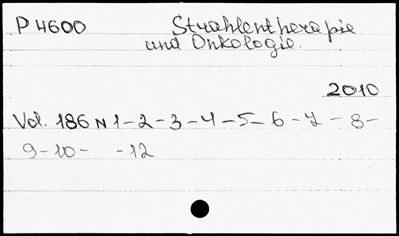 P 4600 Strahlentherapie
und Onkologie.
2010
Vol. 186 N 1-2-3-4-5-6-7-8-
9-10- -12